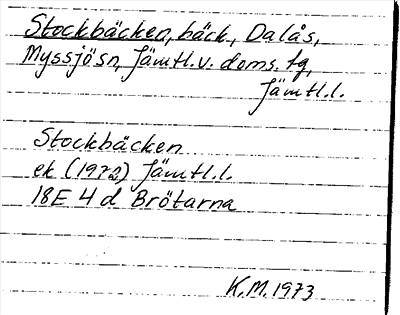 Stockbäcken, bäck, Dalås,
Myssjö sn, Jämtl.v. doms. tg,
Jämtl.l.
Stockbäcken
ek (1972) Jämtl.l.
18E 4 d Brötarna
K.M. 1973